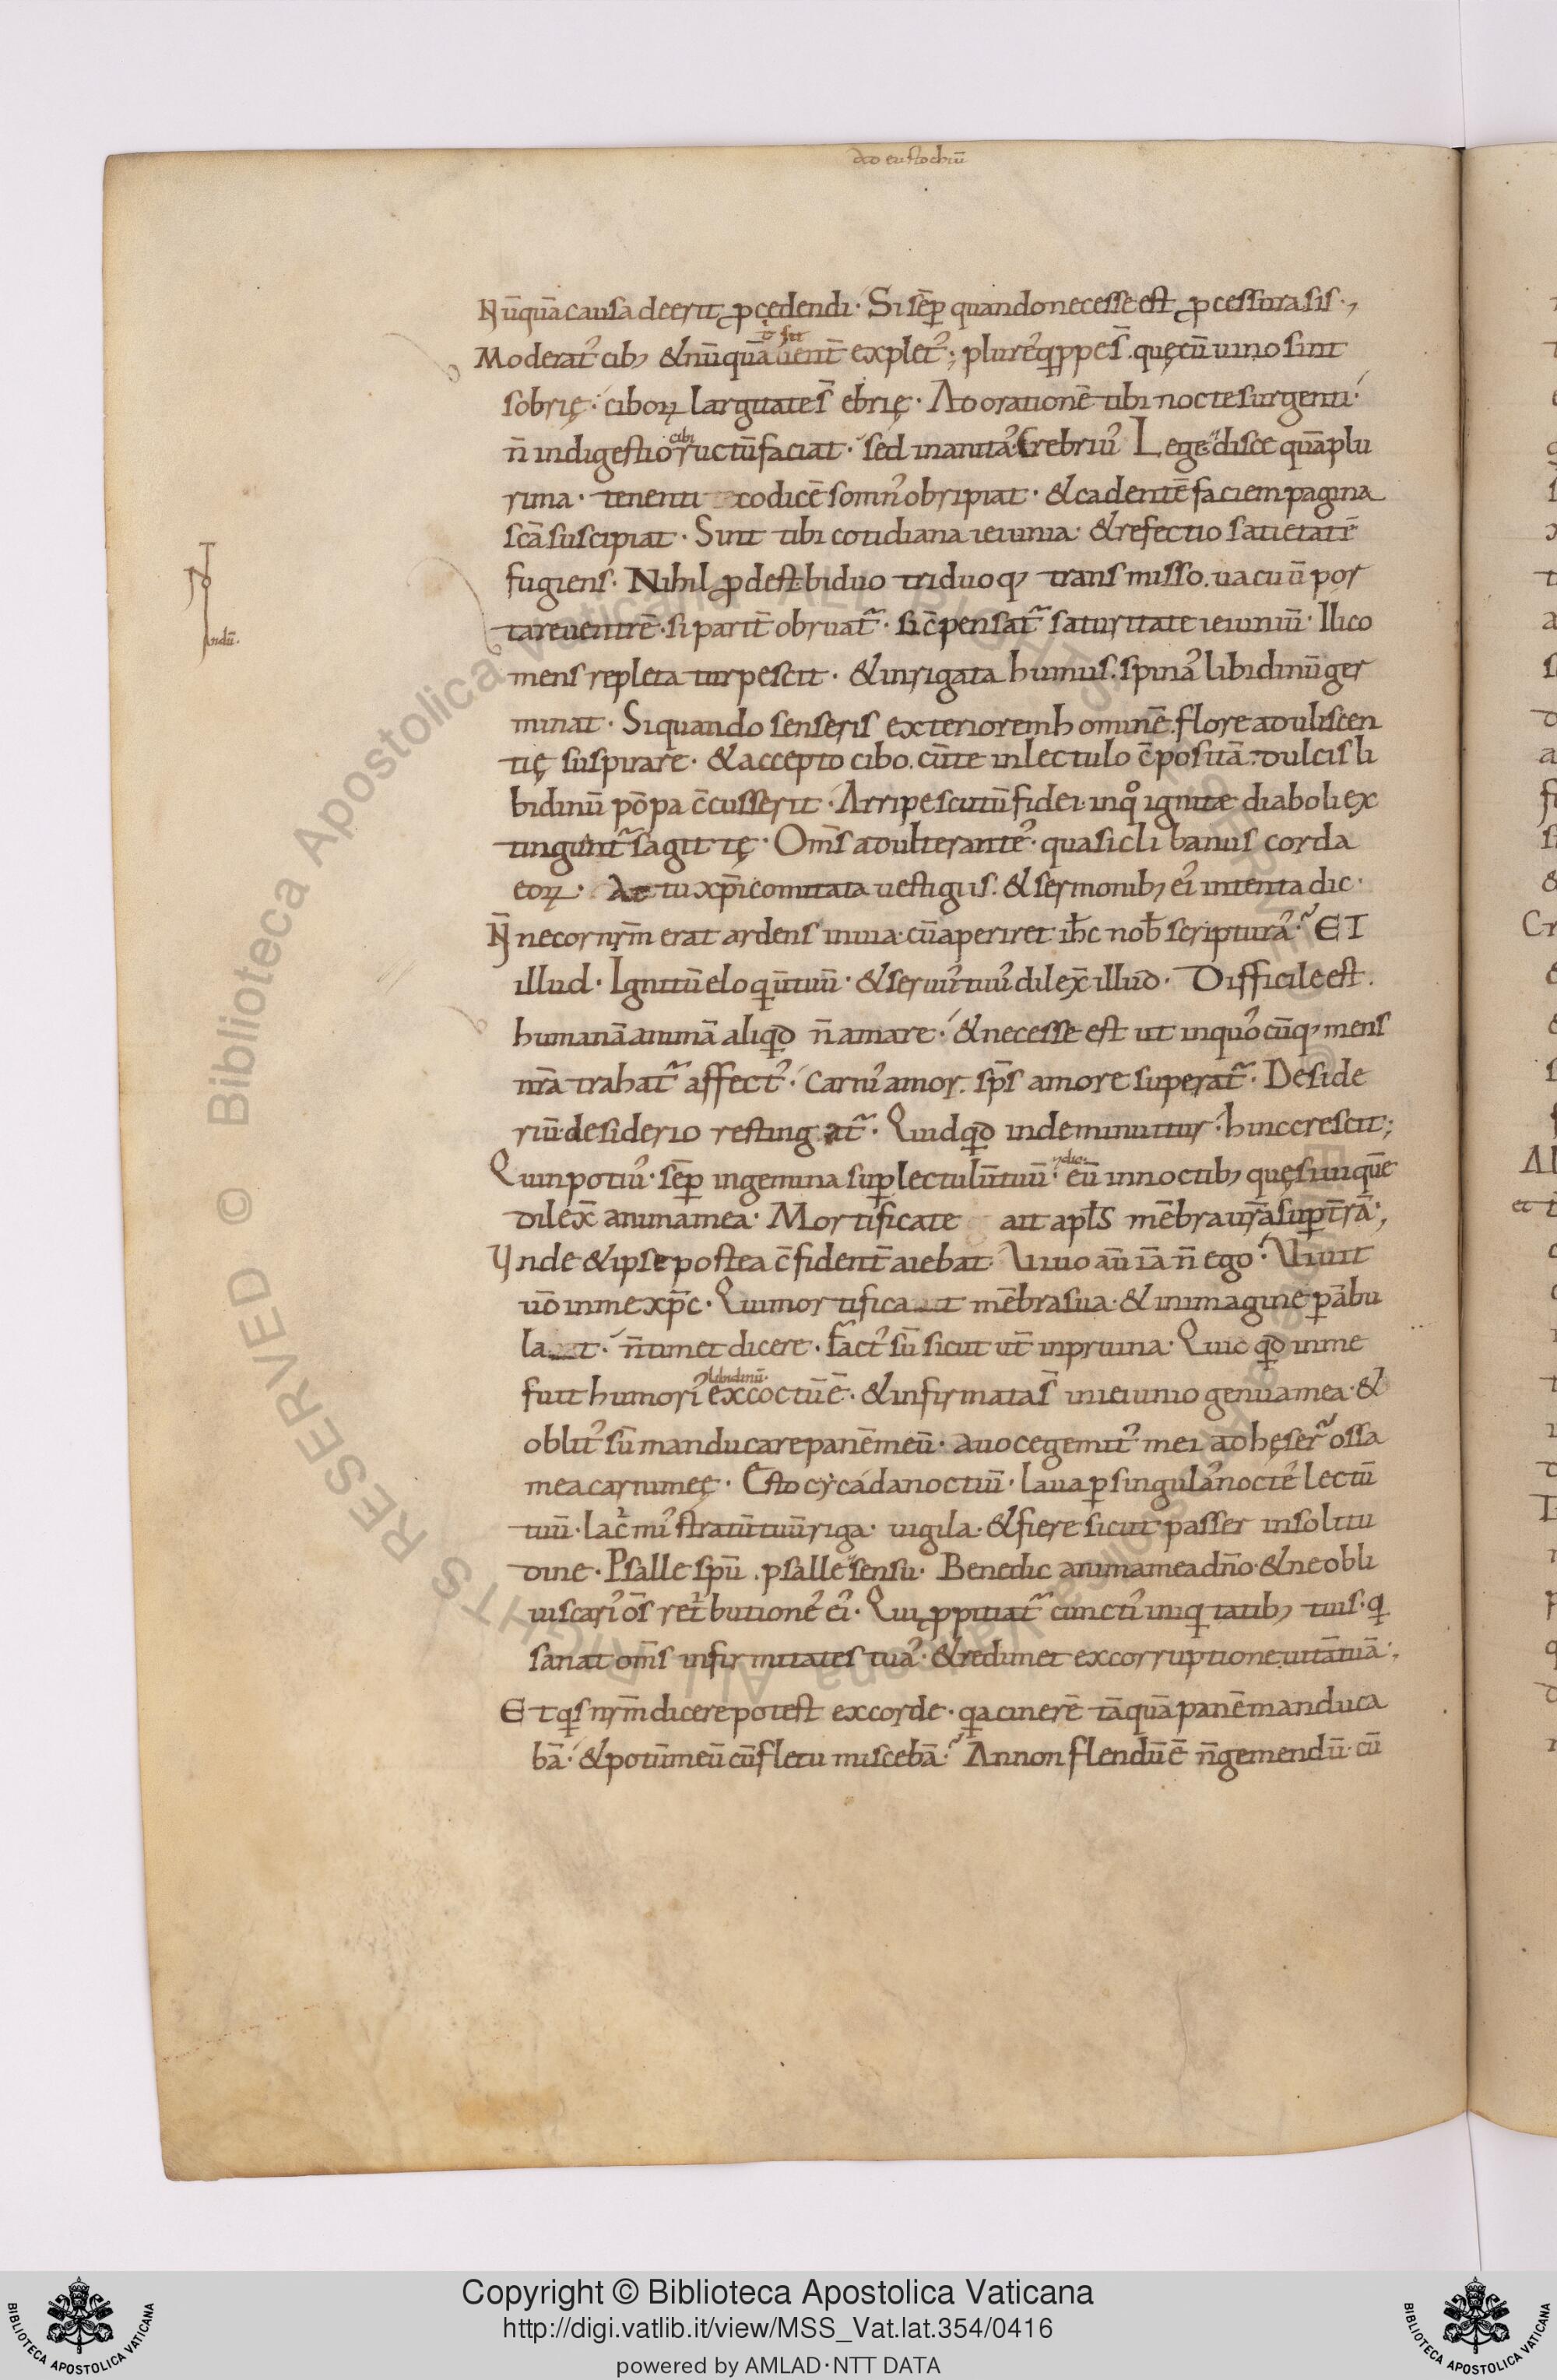 dō eustochiū
Nūquā causa deerit ꝓcedendi· Si sēp quando necesse est ꝓcessura sis·,
Moderat᾽ cib; & nūquā uent̄ explet᾽; plure᾽ q̨ppe s̄. quę cū uino sint
sit
sobrię· ciboꝝ largitate s̄ ebrię· Ad orationē tibi nocte surgenti·
n̄ indigestio ructū faciat· sed inanita᾽ Crebriu᾽ Lege disce quā plu
cibi
rima· tenenti codicē somn᾽ obripiat· & cadentē faciem pagina
scā suscipiat· Sint tibi cotidiana ieiunia· & refectio satietatē
fugiens· Nihil ꝓdest biduo triduoq; transmisso. uacuū por
tare uentrē· si parit̄ obruat᷑· si c̄pensat᷑ saturitate ieiuniū· Ilico
mens repleta torpescit· & inrigata humus. spina᾽ libidinū ger
minat· Si quando senseris exteriorem hominē. flore adulescen
tię suspirare· & accepto cibo. cū te in lectulo c̄positā· dulcis li
bidinū pōpa c̄cusserit· Arripe scutū fidei· in qͦ ignitæ diaboli ex
tingunt᷑ sagittę· Om̄s adulterante᾽· quasi clibanus corda
eoꝝ· At tu xp̄i comitata uestigiis. & sermonib; ei᾽ intenta dic·
N̄ne cor nr̄m erat ardens in uia· cū aperiret ih̄c nob̄ scriptura᾽· ET
illud· Ignitū eloquiū tuū· & seruu᾽ tuu᾽ dilex̄ illud· Difficile est
humanā animā aliqd̄ n̄ amare· & necesse est ut in quo᾽cūq; mens
nr̄a trahat᷑ affect᾽· Carni᾽ amor. sp̄s amore superat᷑· Deside
riū desiderio restingat᷑· Quidqd̄ inde minuitur· hinc crescit;
Quin potiu᾽· sēp ingemina suꝑ lectulū tuū· eū in noctib; quęsiui quē
dilex̄ anima mea· Mortificate ait apłs mēbra ur̄a suꝑ t̄rā·,
Vnde & ipse postea c̄fident̄ aiebat· Viuo aū iā n̄ ego· Viuit
uō in me xp̄c· Qui mortifica it mēbra sua· & in imagine pābu
la t· n̄ timet dicere· fact᾽ sū sicut ut̄ in pruina· Quicqd̄ in me
libidinū
fuit humori᾽ excoctū ē· & infirmata s̄ in ieiunio genua mea· &
oblit᾽ sū manducare panē meū· a uoce gemit᾽ mei adhęser᷑ ossa
mea carni meę· Esto cycada noctiū· laua ꝑ singula᾽ nocte᾽ lectū
tuū· lac̄mi᾽ stratū tuū riga· uigila· & fiere sicut passer in solitu
dine· Psalle spū. psalle sensu· Benedic anima mea dn̄o· & ne obli
uiscari᾽ ōs ret̄butione᾽ ei᾽· Qui ꝓpitiat᷑ cuncti᾽ iniq̨tatib; tuis· q̨
sanat om̄s infirmitates tua᾽· & redimet ex corruptione uitā tuā·,
Et q̨s nr̄m dicere potest ex corde· q̨a cinerē tāquā panē manduca
bā· & potū meū cū fletu miscebā· An non flendū ē n̄ gemendū· cū
Copyright © Biblioteca Apostolica Vaticana
http://digi.vatlib.it/view/MSS_Vat.lat.354/0416
powered by AMLAD·NTT DATA
BIBLIOTECA APOSTOLICA VATICANA
BIBLIOTECA APOSTOLICA VATICANA